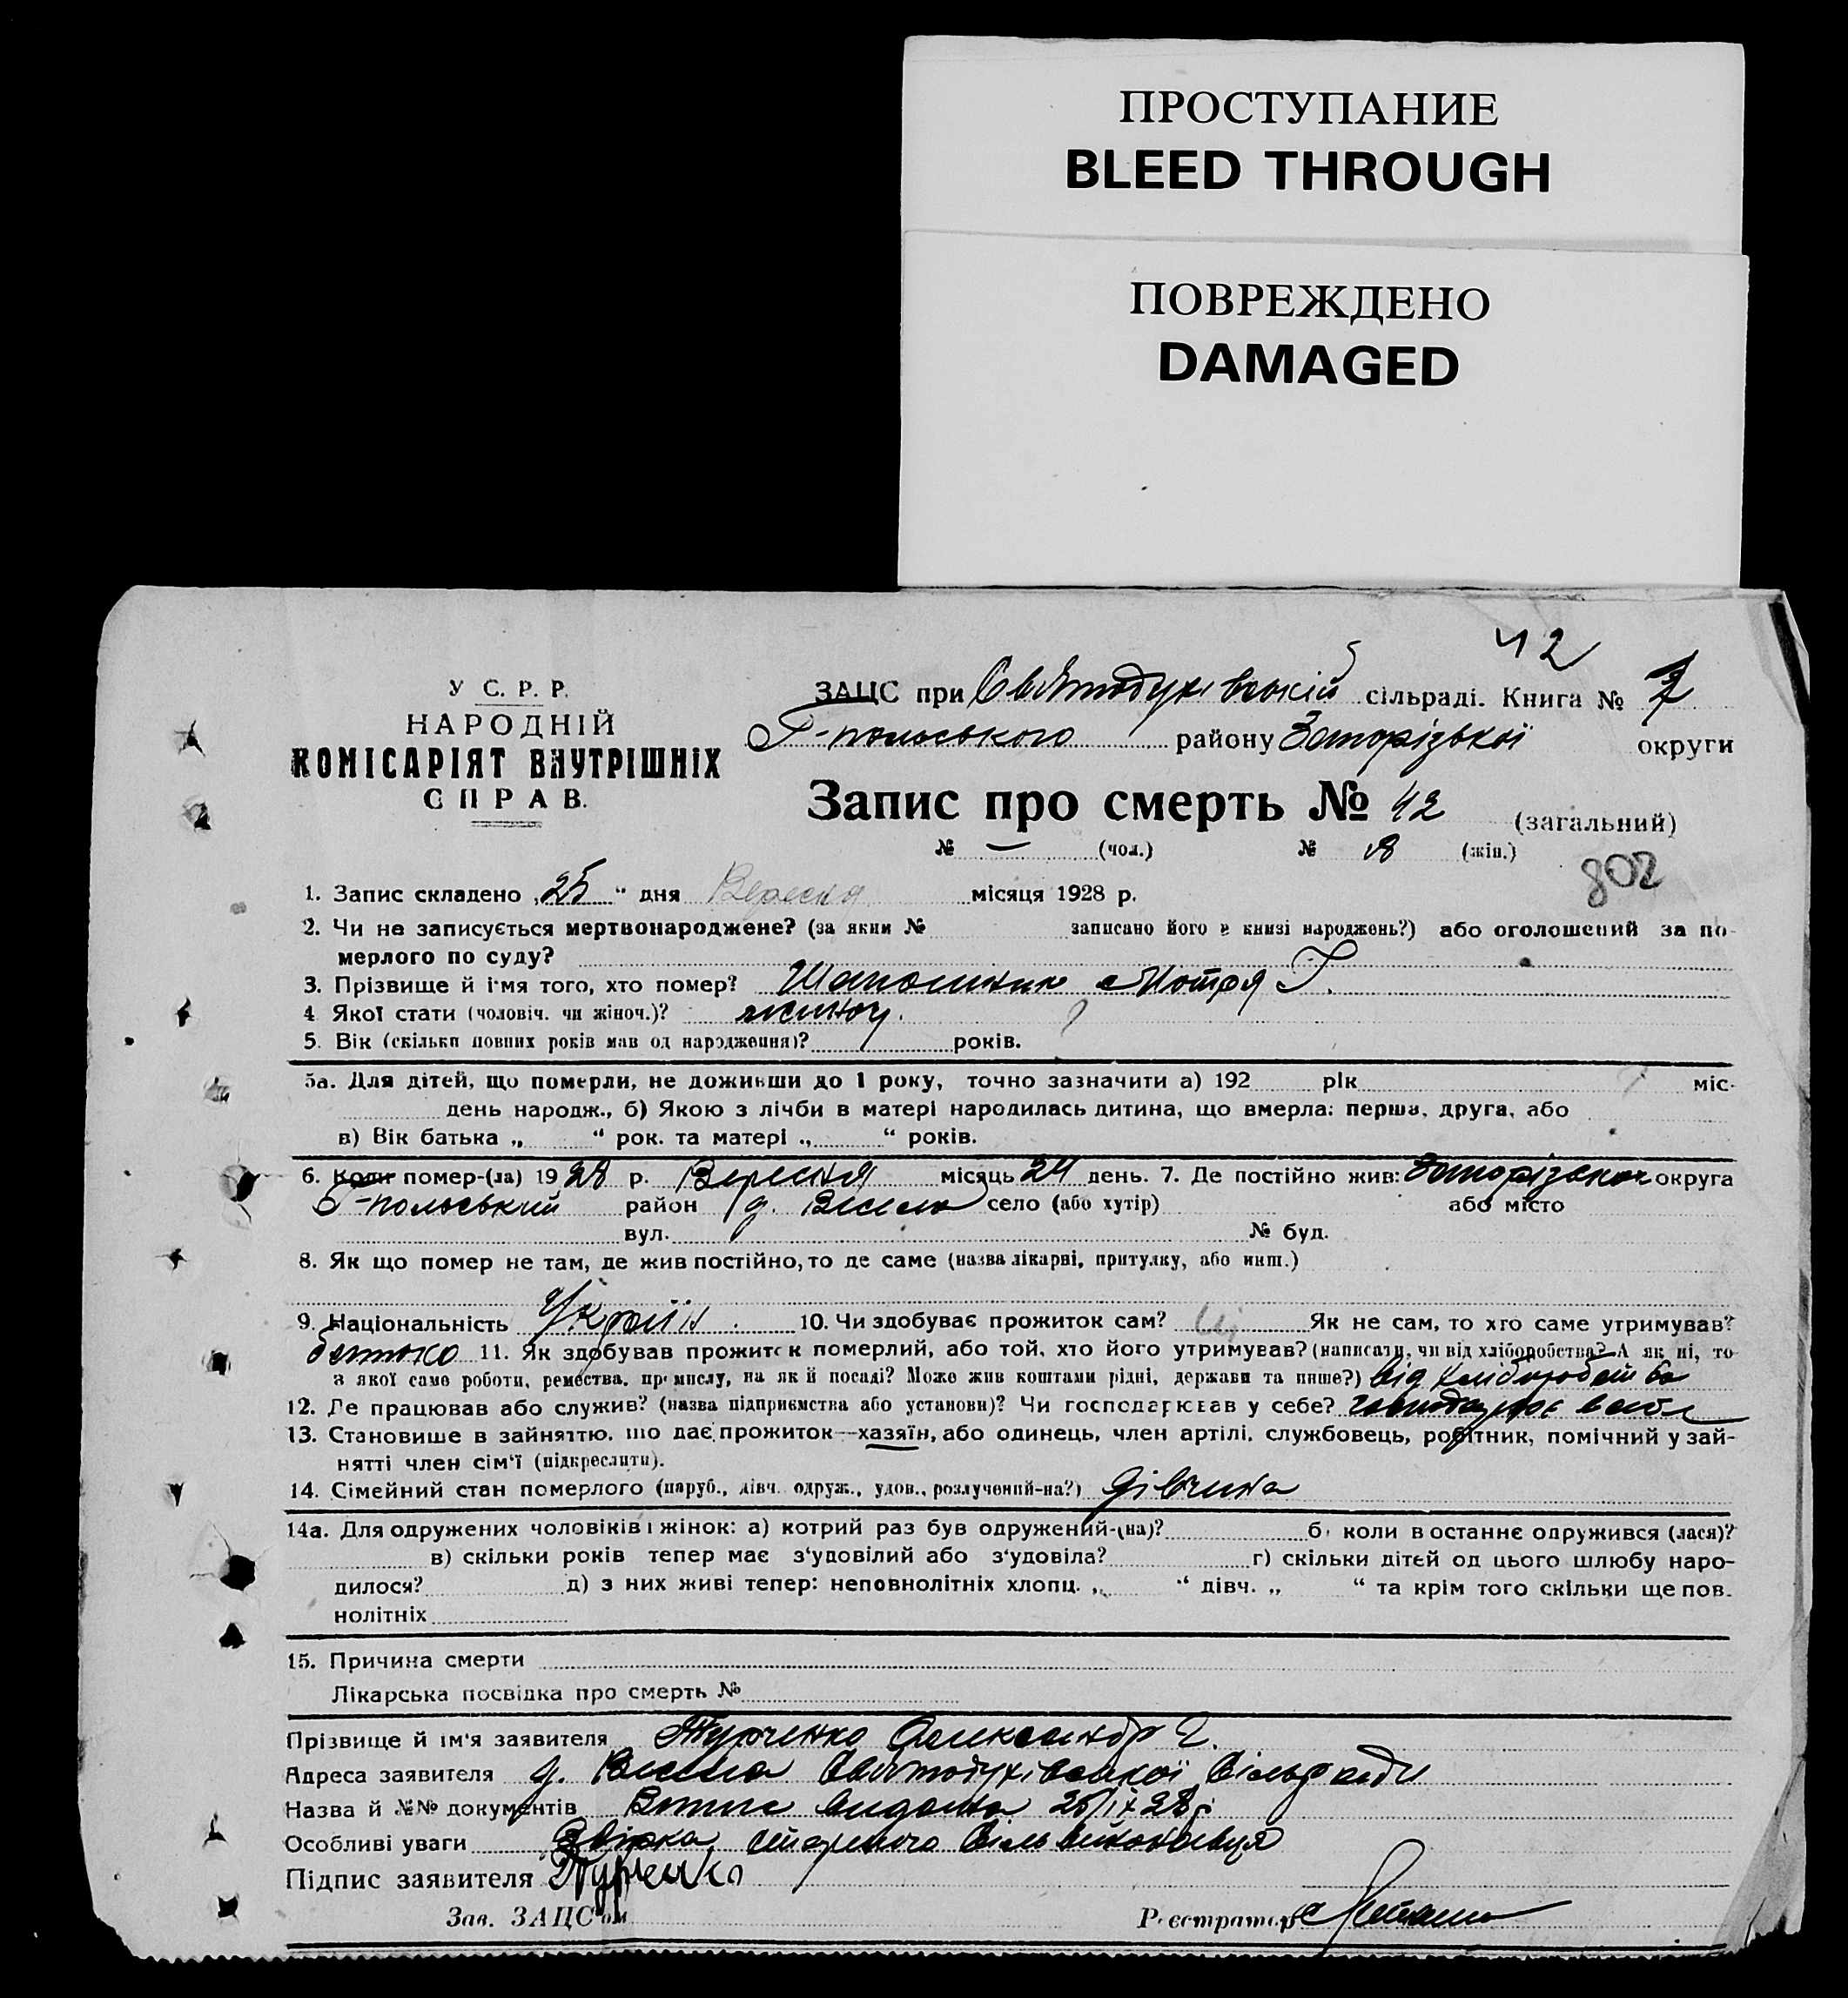 ПРОСТУПАНИЕ
BLEED THROUGH
ПОВРЕЖДЕНО
DAMAGED
42
У С. Р. Р.
НАРОДНІЙ
КОМІСАРІЯТ ВНУТРІШНІХ
СПРАВ.
ЗАЦС при Святодухівській сільраді. Книга № 7
Г-польського району Запорізької округи
Запис про смерть № 42 (загальний)
№ — (чол.) № 18 (жін.)
802
1. Запис складено „25“ дня Вересня місяця 1928 р.
2. Чи не записується мертвонароджене? (за яким № записано його в книзі народжень?) або оголошений за по-
мерлого по суду?
3. Прізвище й ім'я того, хто помер? Шапошник Мотря Г.
4. Якої статі (чоловіч. чи жіноч.)? жіноч.
5. Вік (скільки повних років мав од народження)? років.
5а. Для дітей, що померли, не доживши до 1 року, точно зазначити а) 192 рік міс.
день народж., б) Якою з лічби в матері народилась дитина, що вмерла: перша, друга, або
в) Вік батька „ “ рок. та матері „ “ років.
6. Коли помер-(ла) 1928 р. Вересня місяць 24 день. 7. Де постійно жив: Запорізької округа
Г-польський район д. Весела село (або хутір) або місто
вул. № буд.
8. Як що помер не там, де жив постійно, то де саме (назва лікарні, притулку, або инш.)
9. Національність Україн. 10. Чи здобуває прожиток сам? Як не сам, то хто саме утримував?
батько 11. Як здобував прожиток померлий, або той, хто його утримував? (написати, чи від хліборобства? А як ні, то
з якої само роботи, ремества, промислу, на якій посаді? Може жив коштами рідні, держави та инше?) від хліборобства
12. Де працював або служив? (назва підприємства або установи)? Чи господарював у себе?
13. Становище в зайняттю, що дає прожиток—хазяїн, або одинець, член артілі, службовець, робітник, помічний у зай-
нятті член сім'ї (підкреслити).
14. Сімейний стан померлого (паруб., дівч. одруж., удов., розлучений-на?) дівчина
14а. Для одружених чоловіків і жінок: а) котрий раз був одружений-(на)? б) коли востаннє одружився (лася)?
в) скільки років тепер має з'удовілий або з'удовіла? г) скільки дітей од цього шлюбу наро-
дилося? д) з них живі тепер: неповнолітніх хлопц. „ “ дівч. „ “ та крім того скільки ще пов-
нолітніх
15. Причина смерти
Лікарська посвідка про смерть №
Прізвище й ім'я заявителя Олександр
Адреса заявителя д. Весела Святодухівської Сільради
Назва й №№ документів Випис видана 25/IX 28 р
Особливі уваги
Підпис заявителя
Зав. ЗАЦС'ом Реєстратор